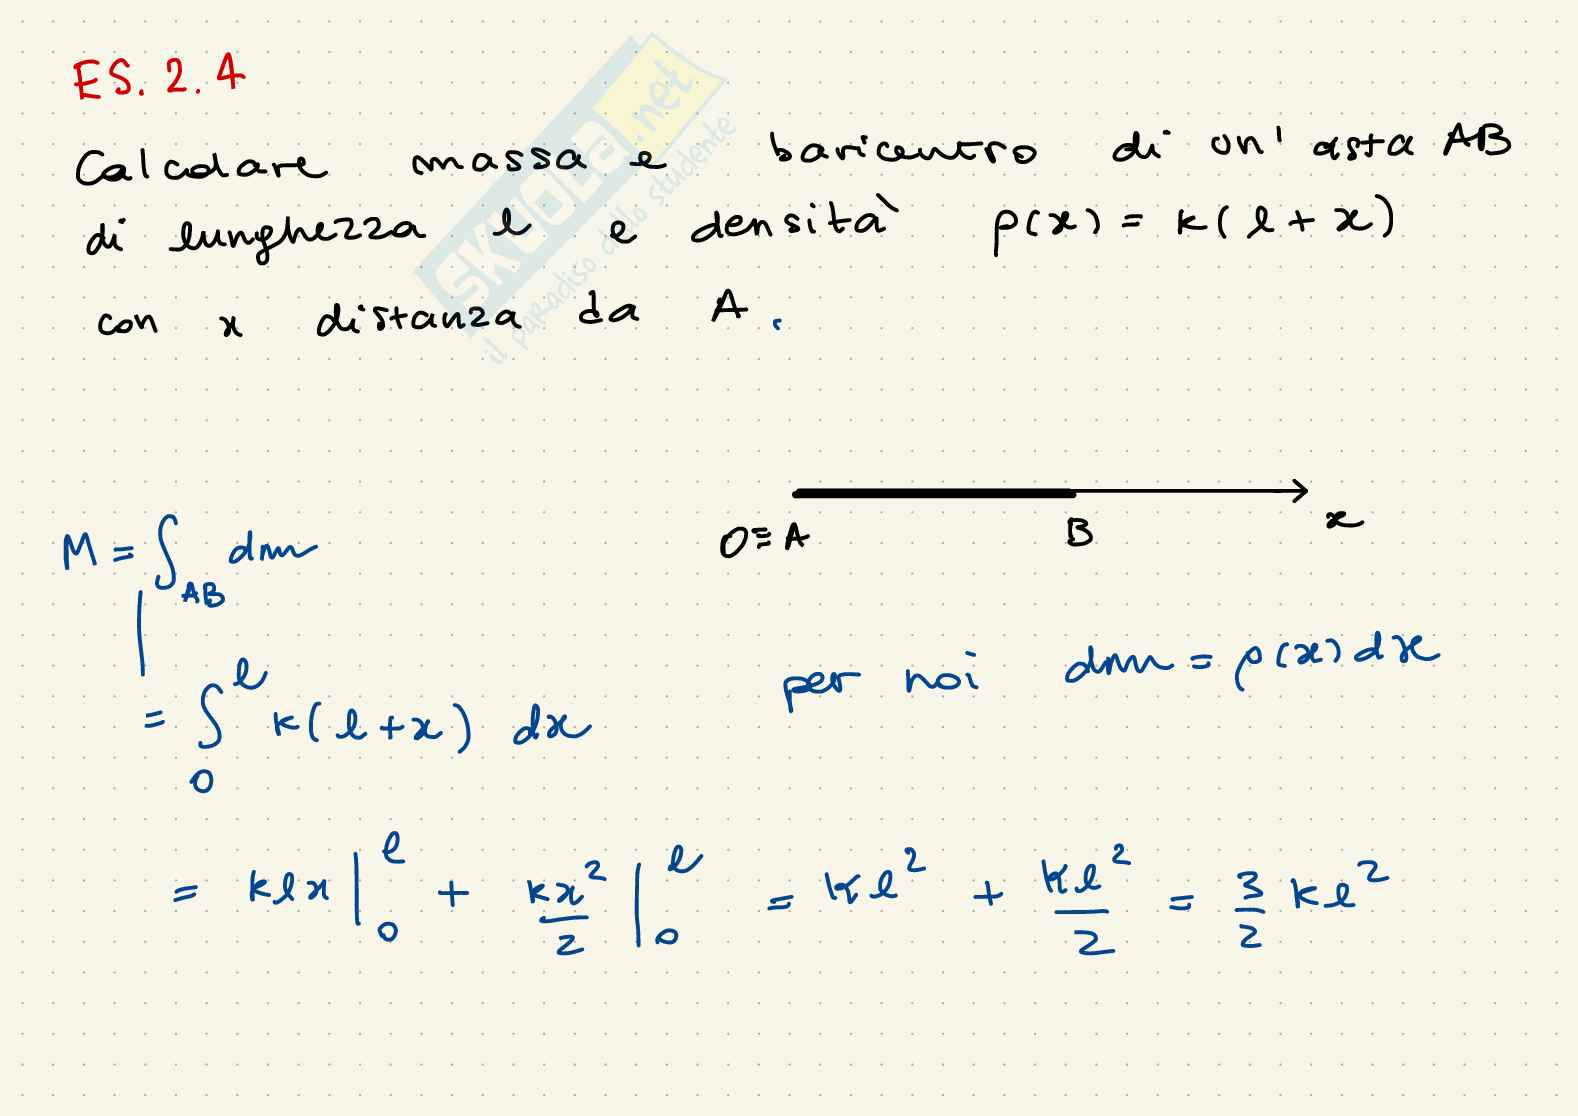 ES. 2.4
Calcolare massa e baricentro di un' asta AB
di lunghezza l e densità ρ(x) = k(l + x)
con x distanza da A.
SKUOLA.net
il paradiso dello studente
O≡A B x
M = ∫_AB dm
per noi dm = ρ(x) dx
= ∫_0^l k(l+x) dx
= klx |_0^l + kx²/2 |_0^l = kl² + kl²/2 = 3/2 kl²